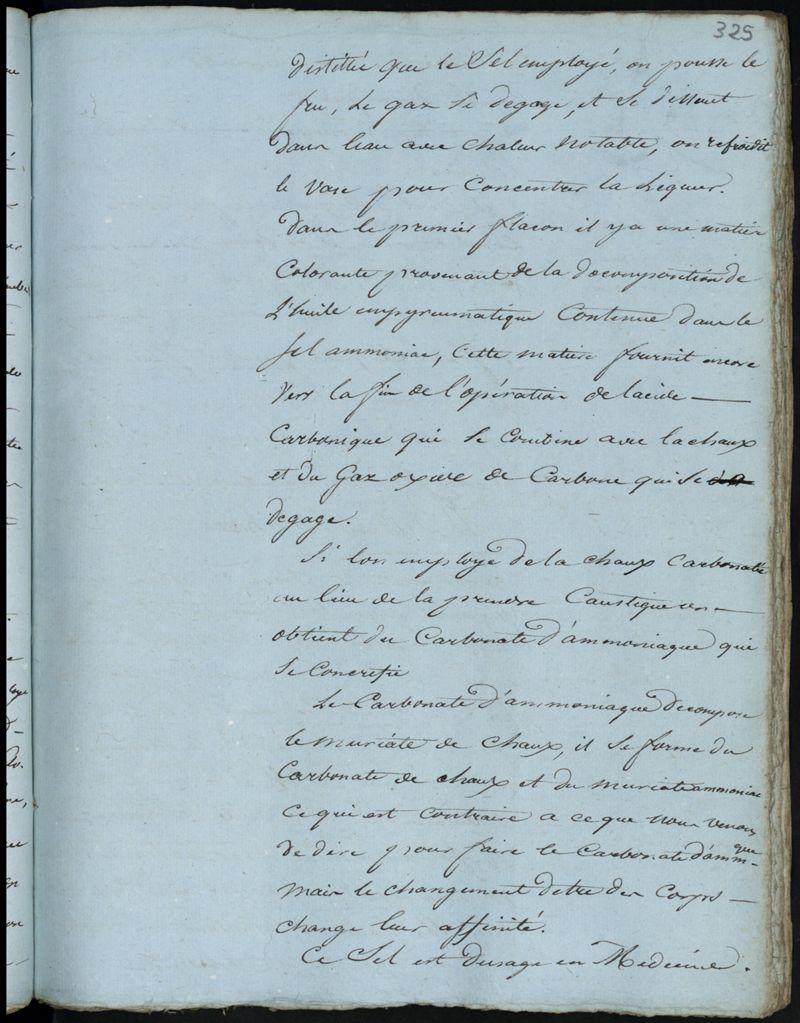 325
distillée que le Sel employé, on pousse le
feu, Le gaz se degage, et se dissout
dans leau avec chaleur notable, on refroidit
le vase pour Concentrer la Liqueur.
Dans le premier flacon il y a une matière
Colorante provenant de la Decomposition de
L'huile empyreumatique Contenue dans le
Sel ammoniac, Cette matiere fournit encore
Vers la fin de l'opération de lacide —
Carbonique qui se Combine avec la chaux
et du Gaz oxide de Carbone qui se
degage.
Si lon employe de la chaux Carbonatée
au lieu de la prendre Caustique on —
obtient du Carbonate D'ammoniaque qui
Se Concretie
Le Carbonate D'ammoniaque Decompose
le muriate de chaux, il se forme du
Carbonate de chaux et du muriate ammoniac
Ce qui est contraire a ce que nous venons
de dire pour faire le Carbonate D'ammque
mais le changement detat des Corps —
change leur affinité.
Ce Sel est Dusage en Medecine.